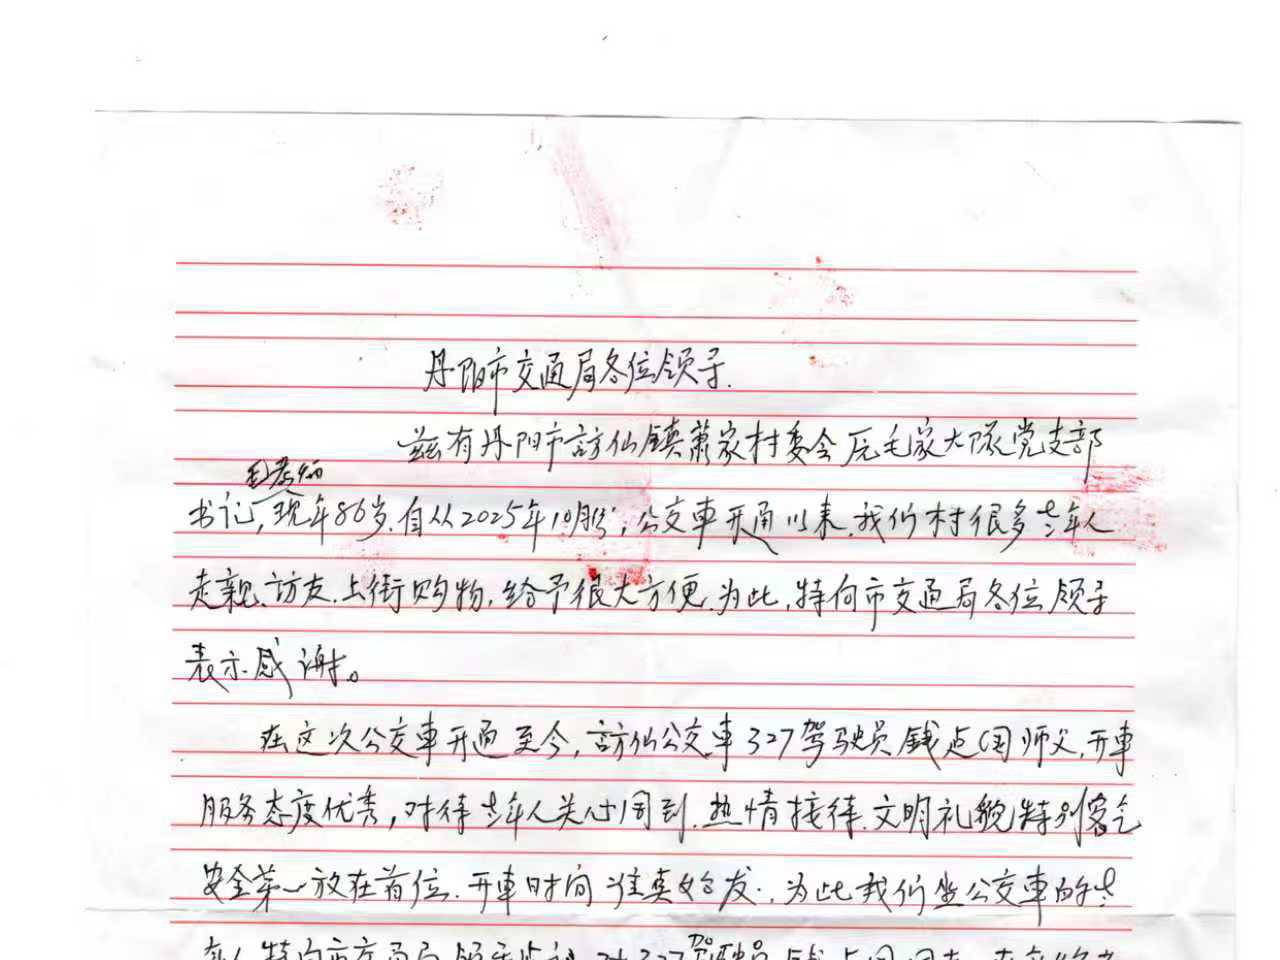 丹阳市交通局各位领导.
兹有丹阳市訪仙镇萧家村委会原毛家大队党支部
书记,现年86岁.自从2025年10月份,公交車开通以来.我们村很多老年人
走亲、访友.上街购物,给予很大方便.为此,特向市交通局各位领导
表示感谢。
在这次公交車开通至今,訪仙公交車327驾驶员钱志国师父,开車
服务态度优秀,对待老年人关心周到.热情接待.文明礼貌特别客气
安全第一放在首位.开車时间准真始发.为此我们坐公交車的老